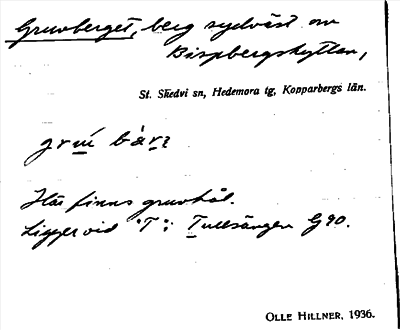 Gruvberget, berg sydväst om
Bispbergshyttan,
St. Skedvi sn, Hedemora tg, Kopparbergs län.
Här finns gruvhål.
Ligger vid "T" i Tullsängen G 90.
OLLE HILLNER, 1936.